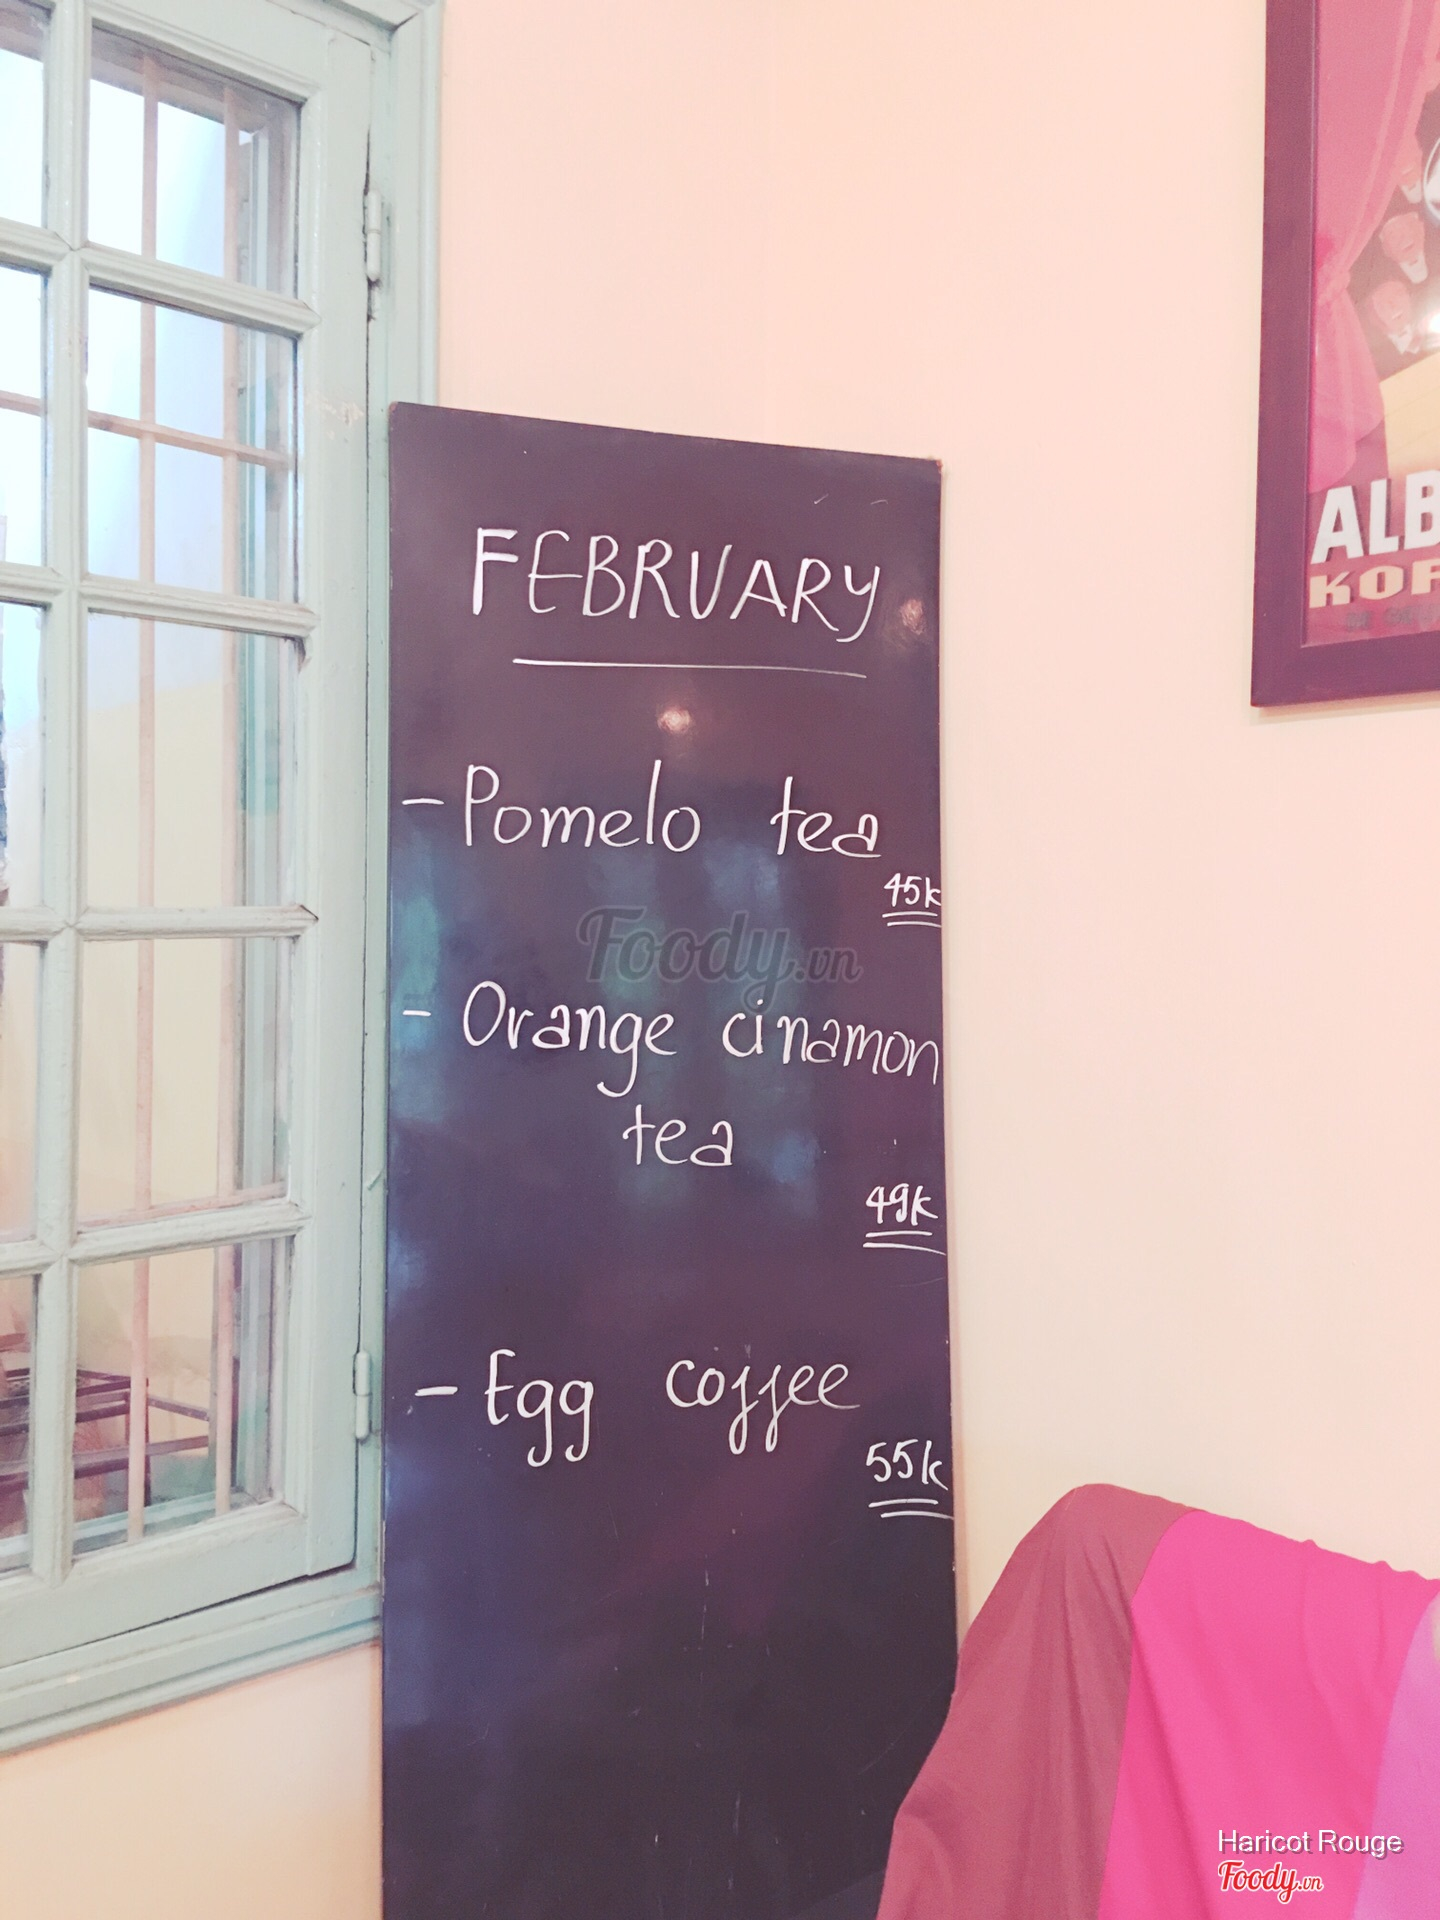 ALB
KOF
FEBRUARY
- Pomelo tea
45k
Foody.vn
- Orange cinamon
tea
49k
- Egg coffee
55k
Haricot Rouge
Foody.vn